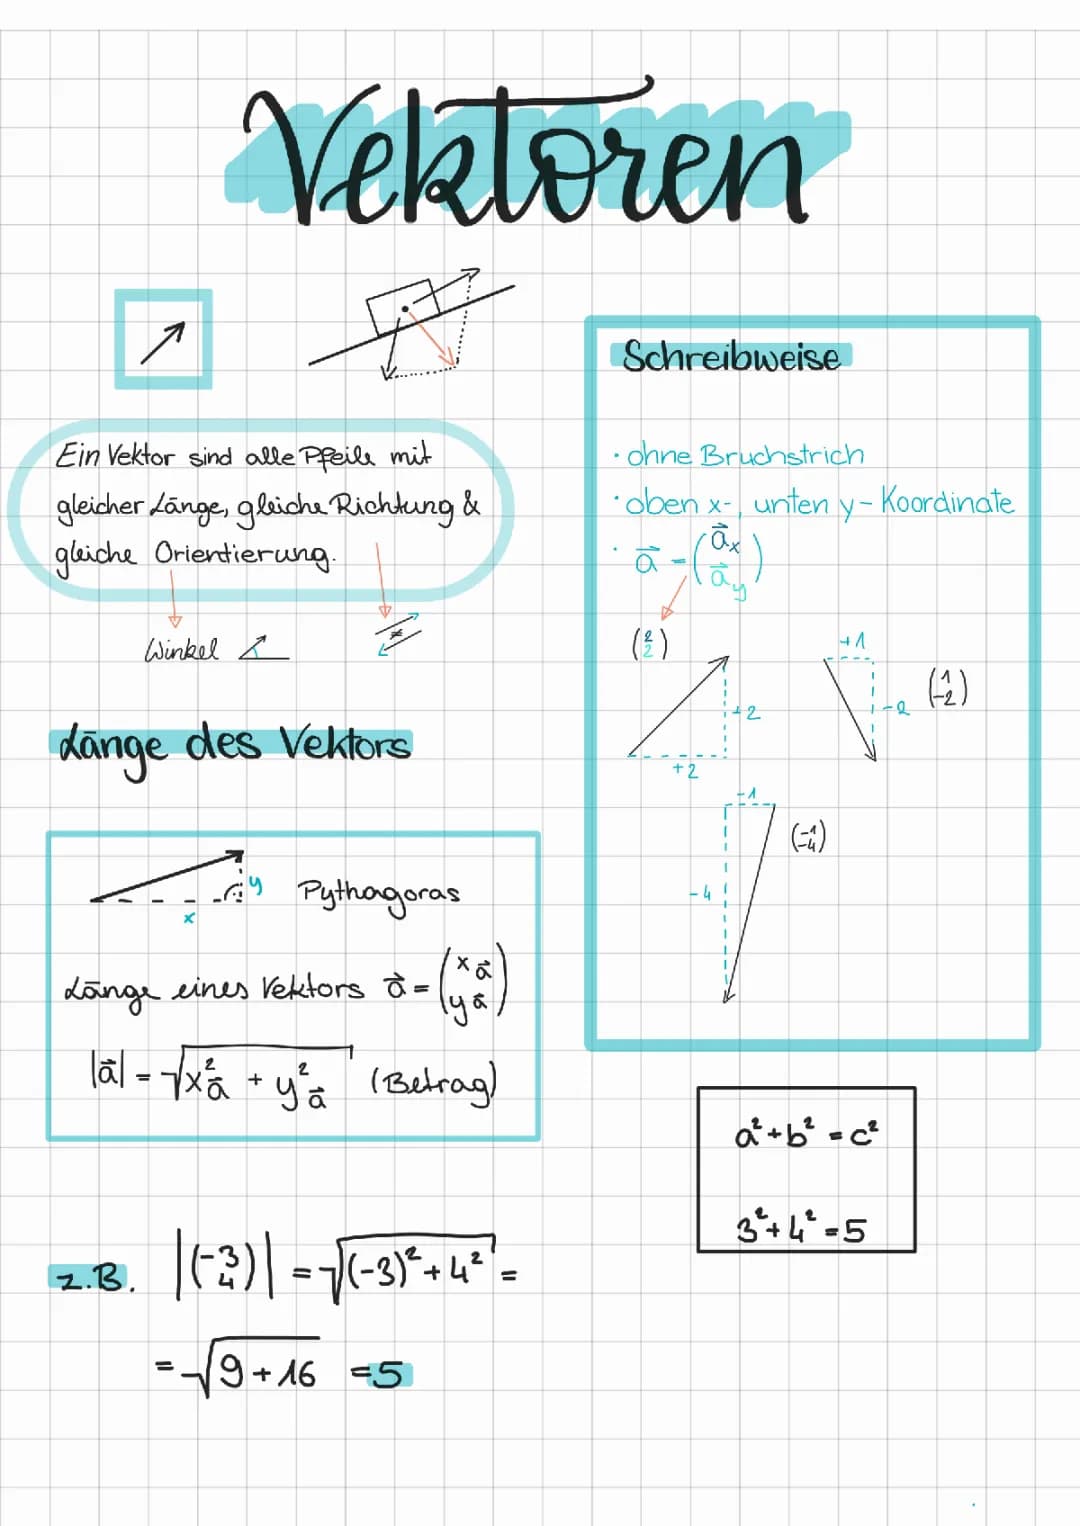 Vektoren
Ein Vektor sind alle Pfeile mit
gleicher Länge, gleiche Richtung &
gleiche Orientierung.
Winkel
≠
Länge des Vektors
x
y
Pythagoras
Länge eines Vektors a⃗ = (x a⃗ / y a⃗)
|a⃗| = √(x²a⃗ + y²a⃗) (Betrag)
z.B. |(-3 / 4)| = √((-3)² + 4²) =
= √(9 + 16) = 5
Schreibweise
· ohne Bruchstrich
· oben x-, unten y-Koordinate
· a⃗ = (a⃗x / a⃗y)
(2 / 2)
+2
+2
+1
-2
(1 / -2)
-1
-4
(-1 / -4)
a² + b² = c²
3² + 4² = 5